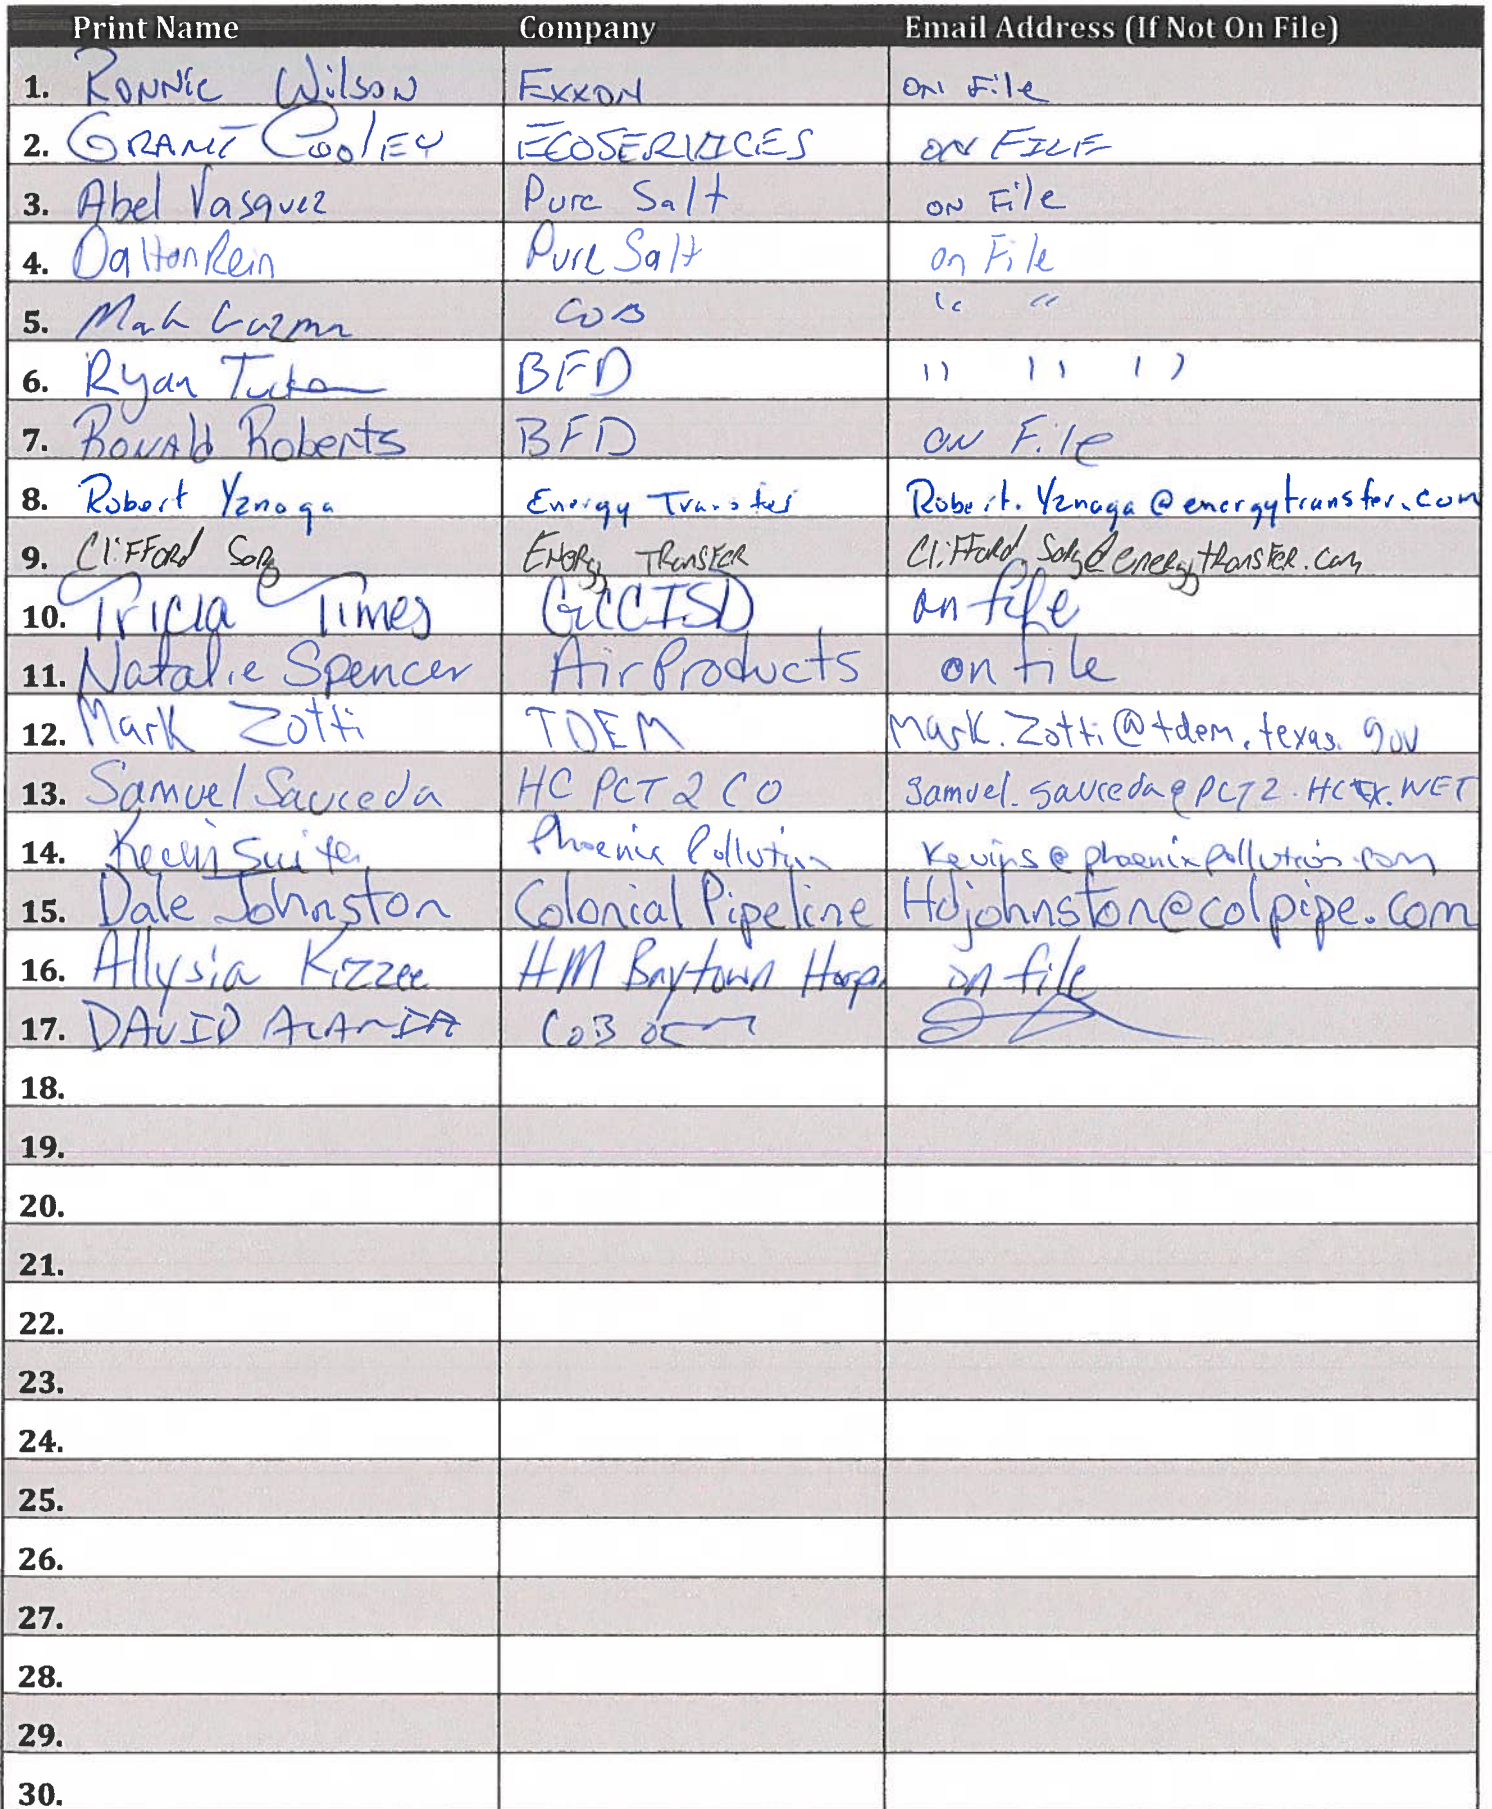 Print Name Company Email Address (If Not On File)
1. RONNIE Wilson EXXON ON File
2. GRANT COOlEY ECOSERVICES ON FILE
3. Abel Vasquez Pure Salt ON File
4. Dalton Rein Pure Salt on File
5. Mark Guzman COB " "
6. Ryan BFD " " "
7. RONAld Roberts BFD ON File
8. Robert Yznaga Energy Transfer Robert.Yznaga@energytransfer.com
9. CliFFORD ENERgy TRANSFER
10. Tricia Times GCCISD on file
11. Natalie Spencer Air Products on file
12. Mark Zotti TDEM Mark.Zotti@tdem.texas.gov
13. Samuel Sauceda HC PCT 2 CO Samuel.sauceda@PCT2.HCTX.NET
14. Phoenix Pollution Kevins@phoenixpollution.com
15. Dale Johnston Colonial Pipeline Hdjohnston@colpipe.com
16. Allysia Kizzee HM Baytown Hosp. on file
17. DAVID COB
18.
19.
20.
21.
22.
23.
24.
25.
26.
27.
28.
29.
30.